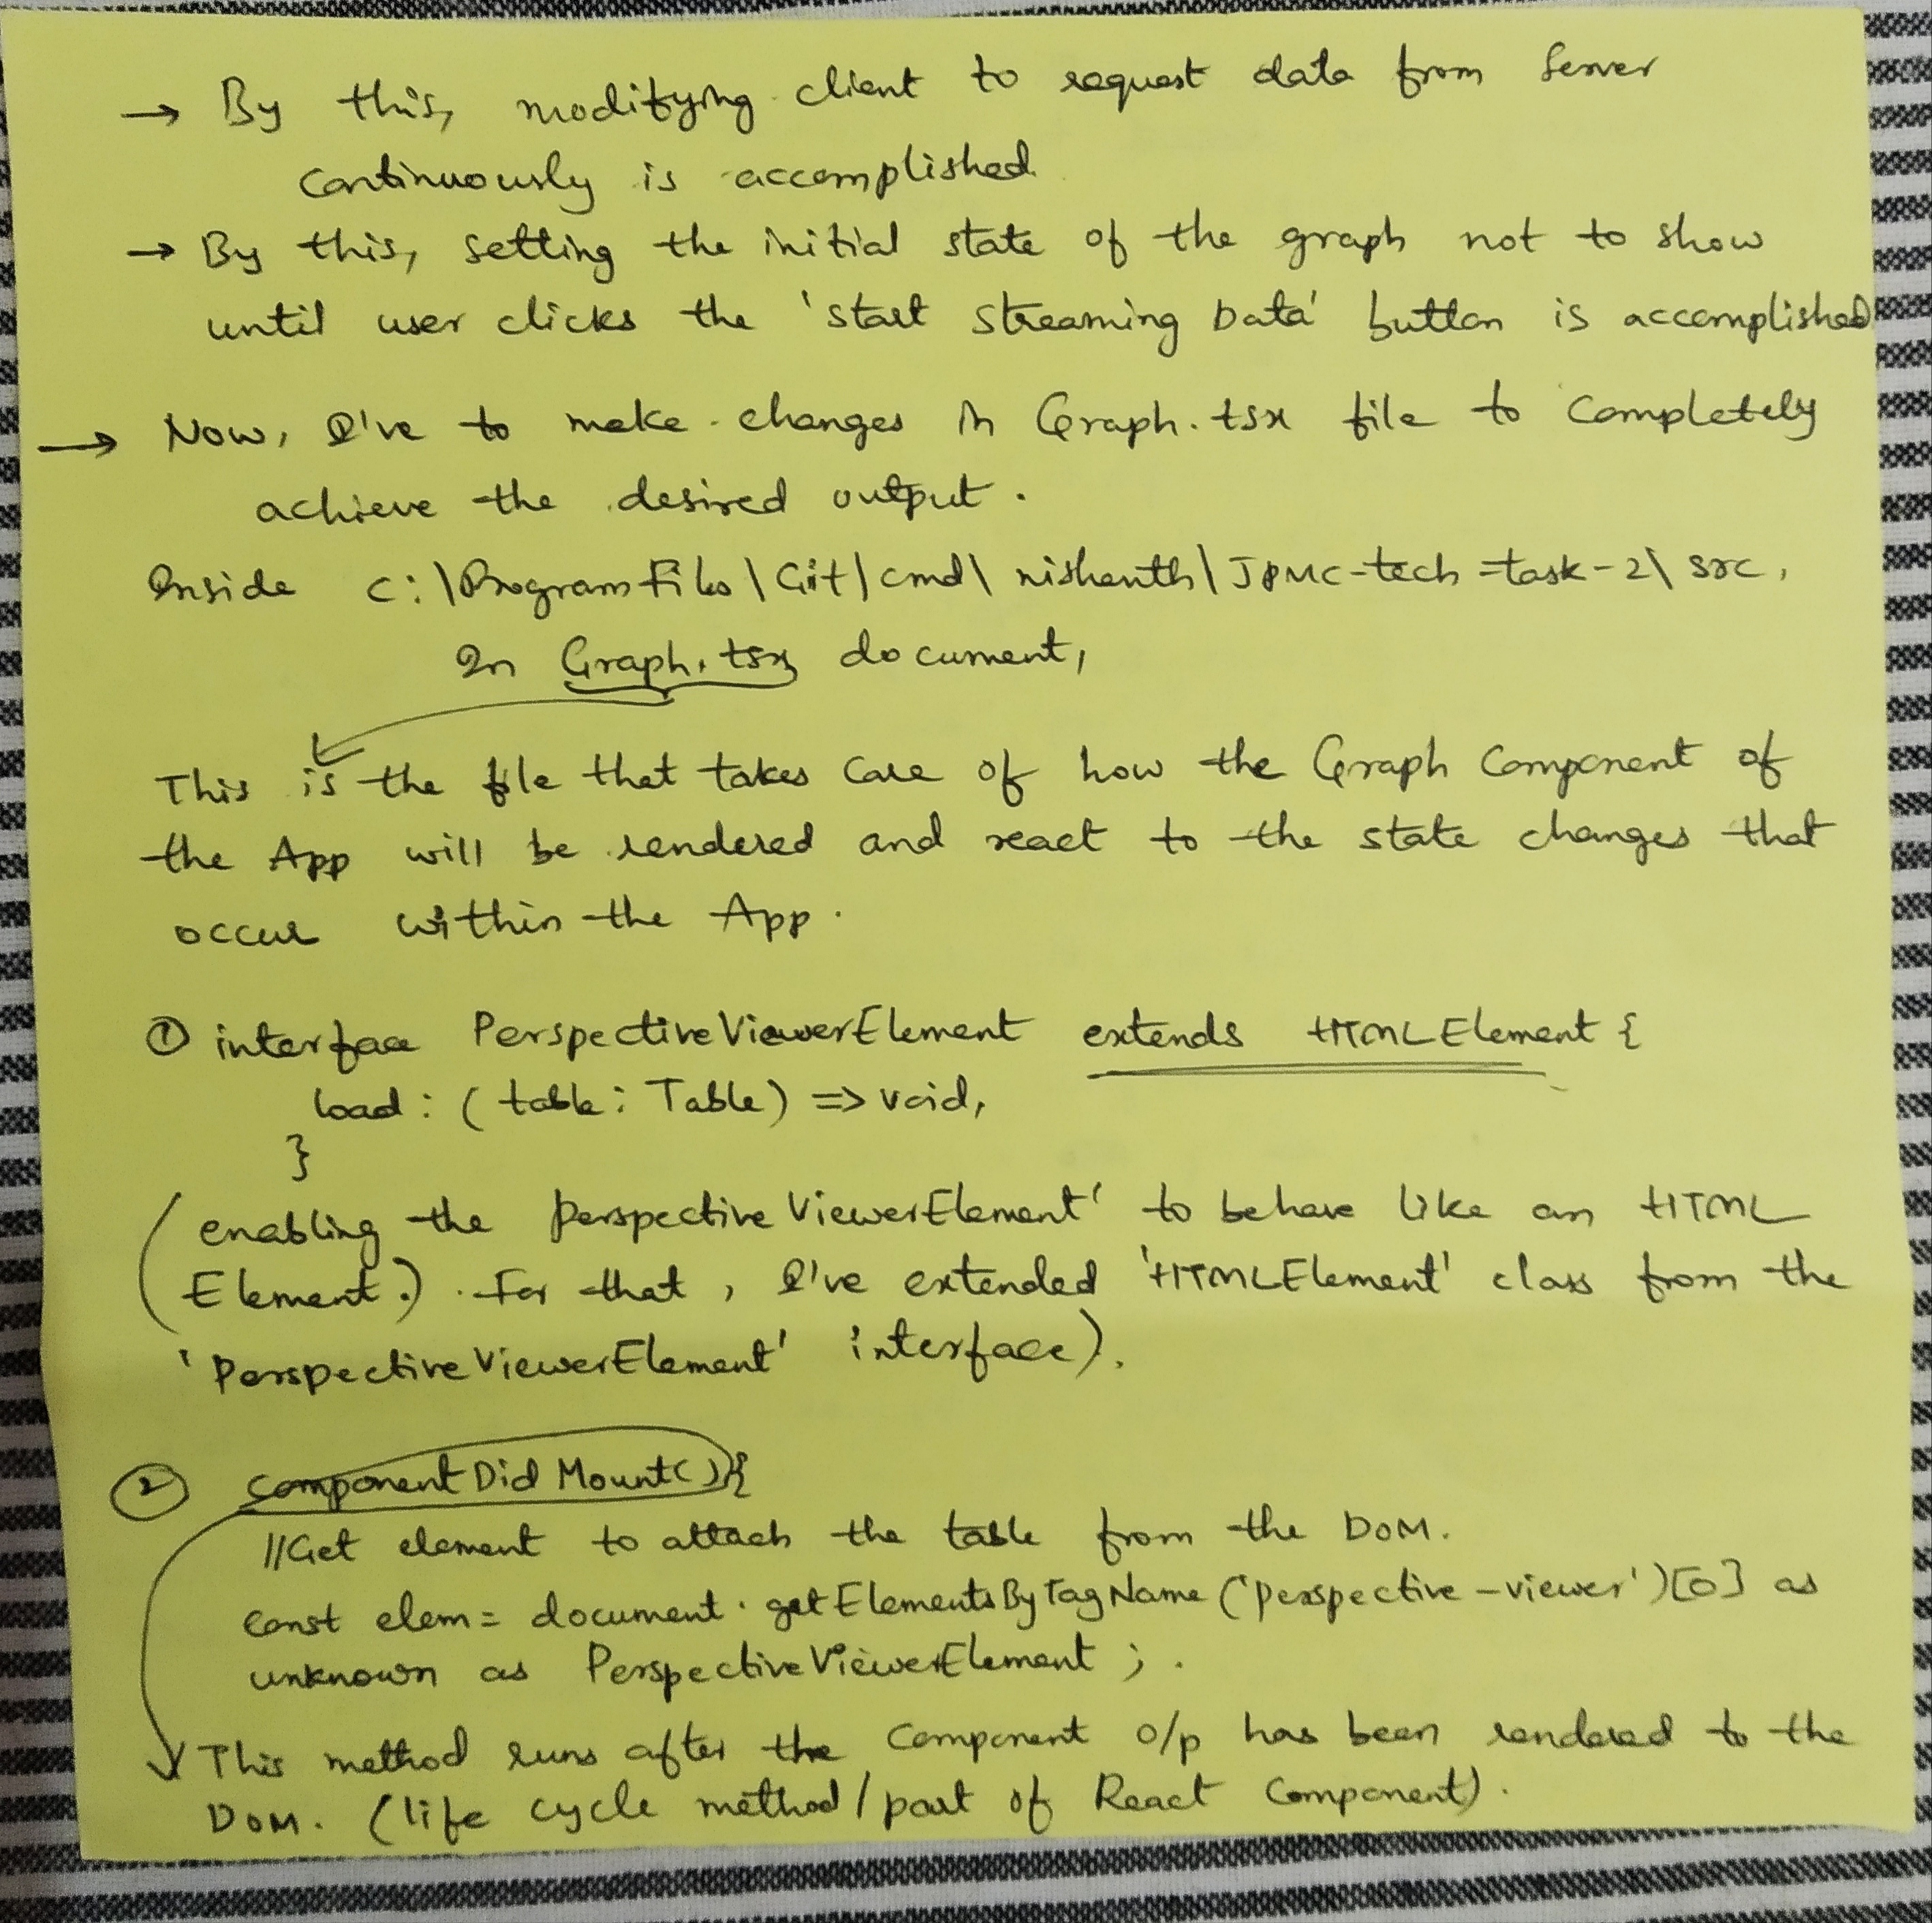 → By this, modifying client to request data from Server
continuously is accomplished.
→ By this, setting the initial state of the graph not to show
until user clicks the 'start streaming Data' button is accomplished
→ Now, I've to make changes in Graph.tsx file to completely
achieve the desired output.
Inside C:\Program Files\Git\cmd\nishanth\JPMC-tech-task-2\src,
In Graph.tsx document,
This is the file that takes care of how the Graph Component of
the App will be rendered and react to the state changes that
occur within the App.
① interface PerspectiveViewerElement extends HTMLElement {
load: (table: Table) => void,
}
(enabling the perspectiveViewerElement' to behave like an HTML
Element.) For that, I've extended 'HTMLElement' class from the
'PerspectiveViewerElement' interface).
② componentDidMount(){
//Get element to attach the table from the DOM.
const elem = document.getElementsByTagName('perspective-viewer')[0] as
unknown as PerspectiveViewerElement;
This method runs after the component o/p has been rendered to the
DOM. (life cycle method/part of React Component).